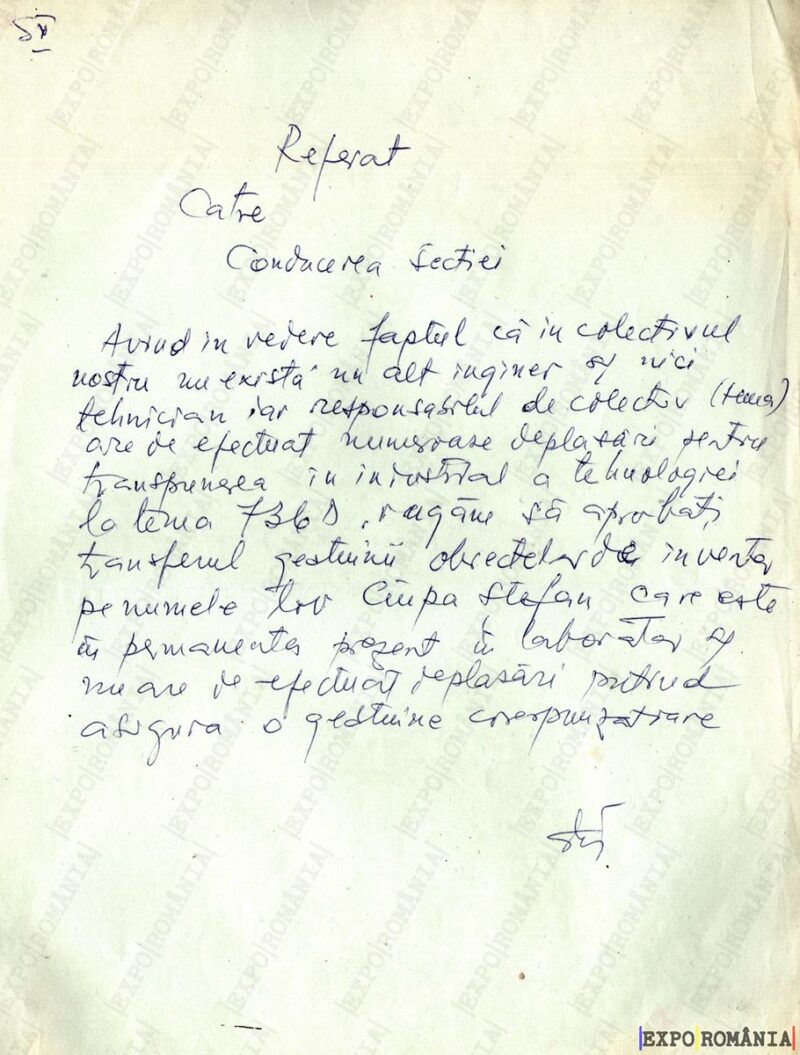 Referat
Catre
Conducerea Sectiei
Avind in vedere faptul că in colectivul
nostru nu există un alt inginer și nici
tehnician iar responsabilul de colectiv (tema)
are de efectuat numeroase deplasări pentru
transpunerea in industrial a tehnologiei
la tema 736D, rugăm să aprobați
transferul gestiunii obiectelor de inventar
pe numele tov Ciupa Ștefan care este
în permanenta prezent în laborator și
nu are de efectuat deplasări putind
asigura o gestiune corespunzatoare
EXPO ROMÂNIA